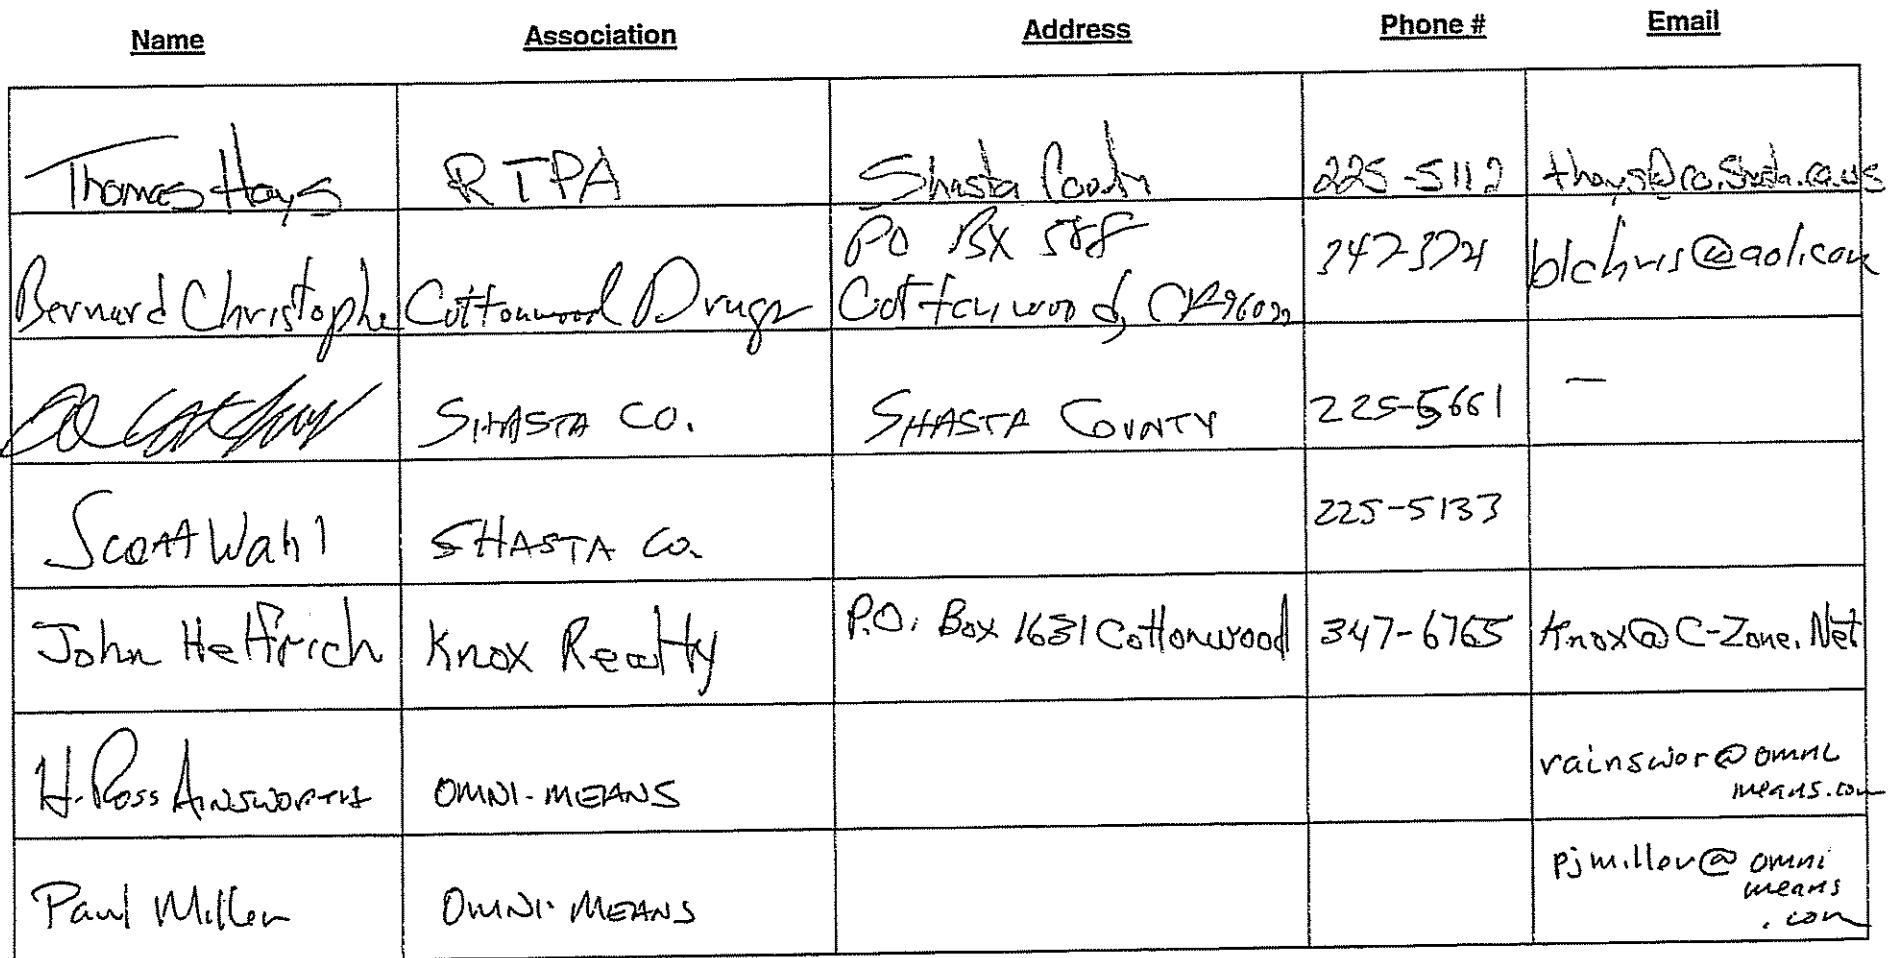 Name Association Address Phone # Email
Thomas Hays RTPA Shasta County 225-5112 thays@co.shasta.ca.us
PO BX 588
Bernard Christophe Cottonwood Drugs Cottonwood, CA 96022 blchris@aol.com
SHASTA CO. SHASTA COUNTY 225-5661 —
Scott Wahl SHASTA CO. 225-5133
John Helfrich Knox Realty P.O. Box 1631 Cottonwood 347-6765 Knox@C-Zone.Net
H. Ross AINSWORTH OMNI-MEANS rainswor@omni
means.com
Paul Miller OMNI-MEANS pjmiller@omni
means
.com